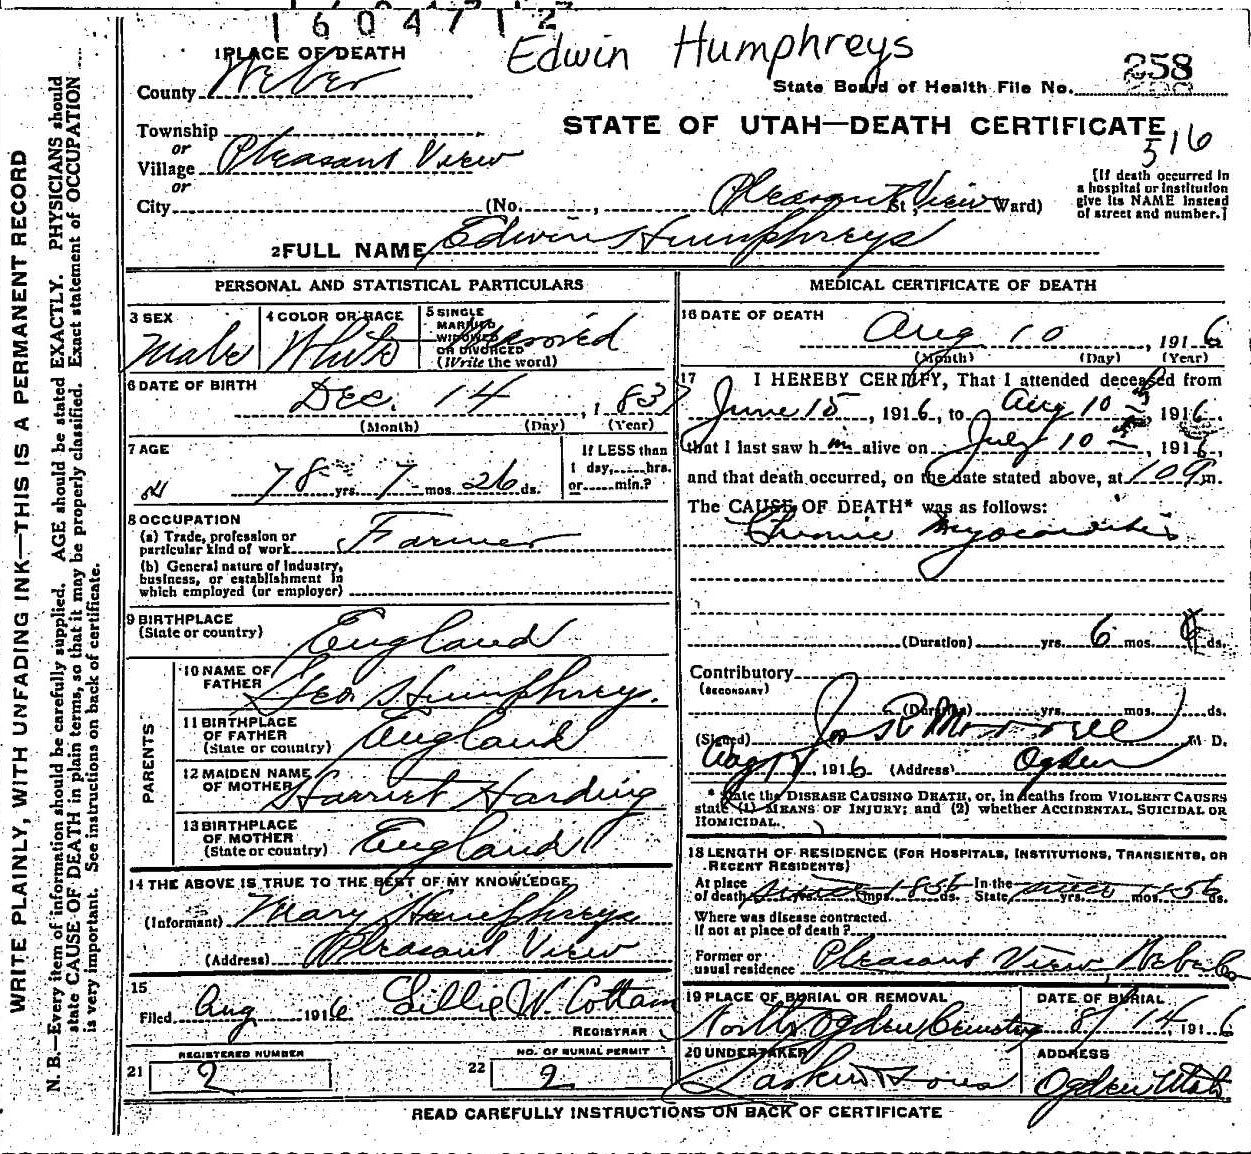 1604712
Edwin Humphreys
1 PLACE OF DEATH
258
County Weber
State Board of Health File No.
Township
STATE OF UTAH—DEATH CERTIFICATE
or
516
Village Pleasant View
or
[If death occurred in
a hospital or institution
give its NAME instead
of street and number.]
City (No. , Pleasant View St., Ward)
2 FULL NAME Edwin Humphreys
PERSONAL AND STATISTICAL PARTICULARS
3 SEX
Male
4 COLOR OR RACE
White
5 SINGLE
MARRIED
WIDOWED
OR DIVORCED
(Write the word)
6 DATE OF BIRTH
Dec. 14, 1837
(Month) (Day) (Year)
7 AGE
78 yrs. 7 mos. 26 ds.
If LESS than
1 day, hrs.
or min.?
8 OCCUPATION
(a) Trade, profession or
particular kind of work Farmer
(b) General nature of industry,
business, or establishment in
which employed (or employer)
9 BIRTHPLACE
(State or country) England
PARENTS
10 NAME OF
FATHER Geo Humphrey.
11 BIRTHPLACE
OF FATHER
(State or country) England
12 MAIDEN NAME
OF MOTHER Harriet Harding
13 BIRTHPLACE
OF MOTHER
(State or country) England
14 THE ABOVE IS TRUE TO THE BEST OF MY KNOWLEDGE
(Informant) Mary Humphreys
(Address) Pleasant View
15
Filed Aug 1916 Lillie W. Cottam
REGISTRAR
REGISTERED NUMBER
21 2
NO. OF BURIAL PERMIT
22 2
MEDICAL CERTIFICATE OF DEATH
16 DATE OF DEATH
Aug 10, 1916
(Month) (Day) (Year)
17 I HEREBY CERTIFY, That I attended deceased from
June 15, 1916, to Aug 10, 1916.
that I last saw him alive on July 10, 1916,
and that death occurred, on the date stated above, at 10 m.
The CAUSE OF DEATH* was as follows:
Chronic Myocarditis
(Duration) yrs. 6 mos. ds.
Contributory
(SECONDARY)
(Duration) yrs. mos. ds.
(Signed) Jos R Morrell M D.
Aug 1916 (Address) Ogden
* State the DISEASE CAUSING DEATH, or, in deaths from VIOLENT CAUSES
state (1) MEANS OF INJURY; and (2) whether ACCIDENTAL, SUICIDAL OR
HOMICIDAL.
18 LENGTH OF RESIDENCE (FOR HOSPITALS, INSTITUTIONS, TRANSIENTS, OR
RECENT RESIDENTS)
At place In the
of death since 1856 yrs. mos. ds. State since 1856 yrs. mos. ds.
Where was disease contracted.
If not at place of death?
Former or
usual residence Pleasant View, Weber Co
19 PLACE OF BURIAL OR REMOVAL
North Ogden Cemetery
DATE OF BURIAL
8/14, 1916
20 UNDERTAKER
Larkin & Sons
ADDRESS
Ogden Utah
READ CAREFULLY INSTRUCTIONS ON BACK OF CERTIFICATE
WRITE PLAINLY, WITH UNFADING INK—THIS IS A PERMANENT RECORD
N. B.—Every item of information should be carefully supplied. AGE should be stated EXACTLY. PHYSICIANS should
state CAUSE OF DEATH in plain terms, so that it may be properly classified. Exact statement of OCCUPATION
is very important. See instructions on back of certificate.